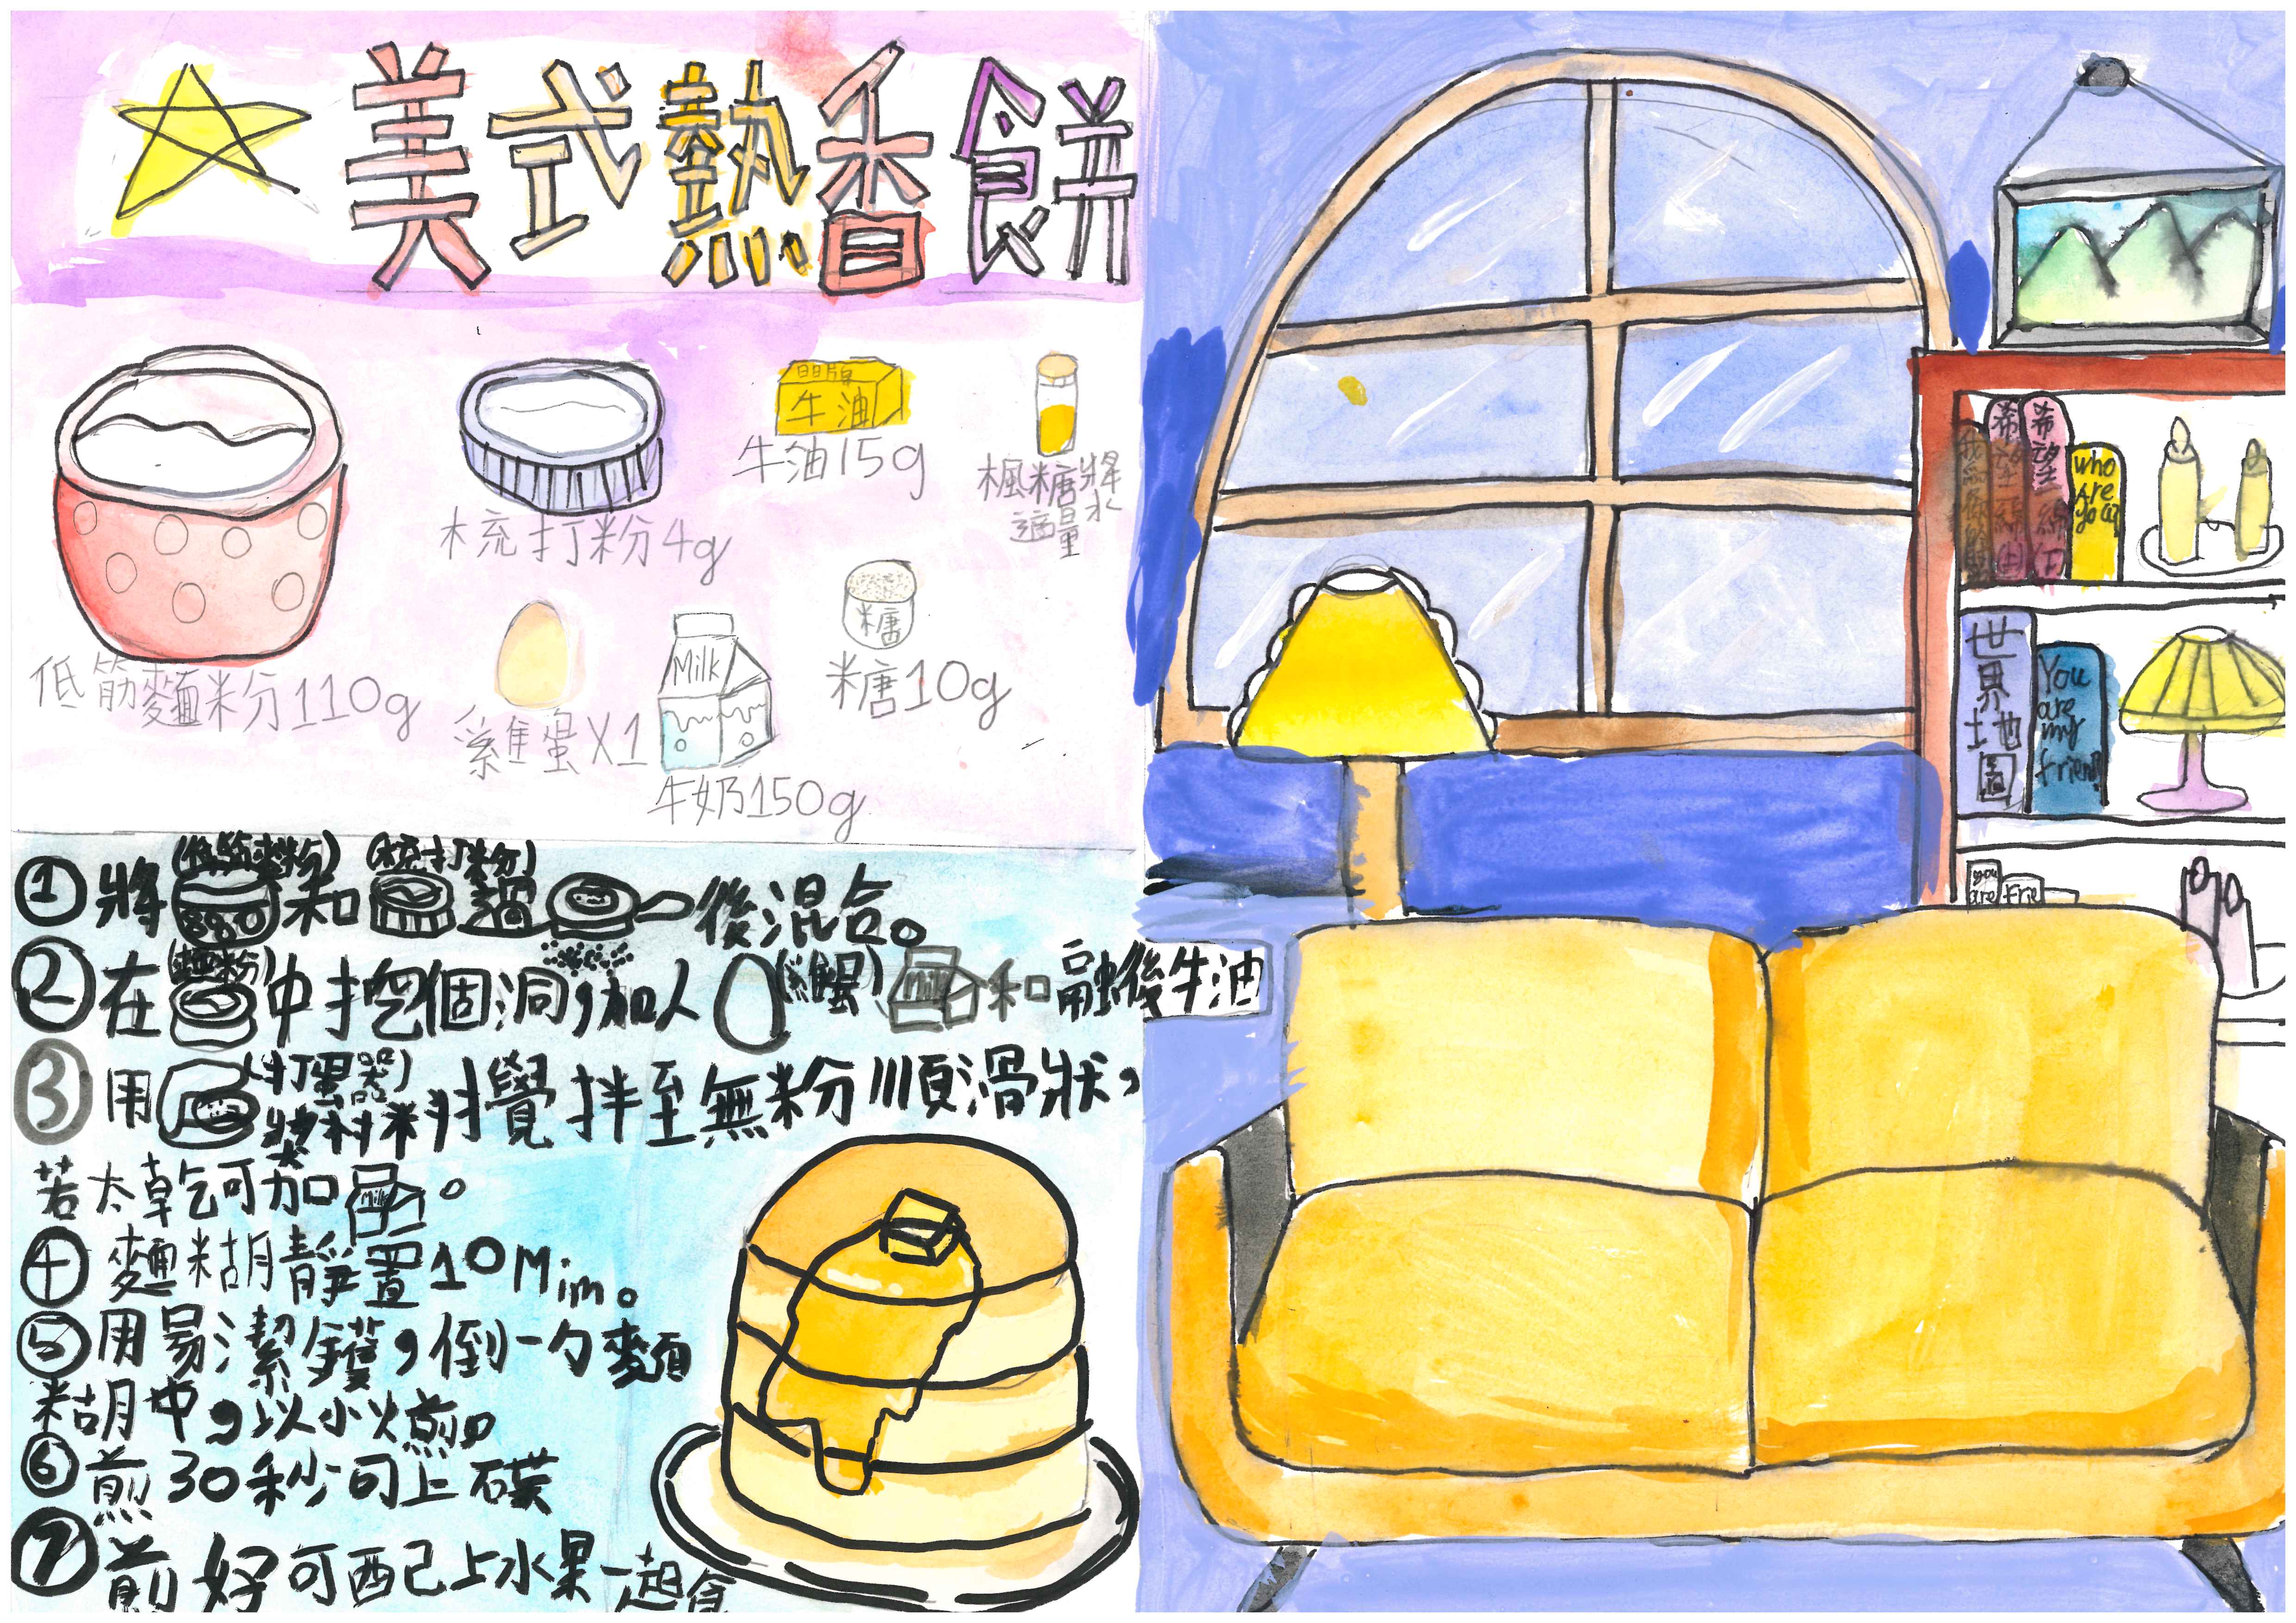 美式熱香餅
牛油
牛油15g
楓糖漿
適量
梳打粉4g
糖
糖10g
Milk
低筋麵粉110g
雞蛋X1
牛奶150g
(低筋麵粉) (梳打粉)
①將和過後混合。
(麵粉)
②在中挖個洞,加入(雞蛋) Milk和融後牛油
③用(打蛋器)
材料攪拌至無粉順滑狀,
若太乾可加Milk。
④麵糊靜置10Min。
⑤用易潔鑊,倒一勺麵
糊中,以小火煎。
⑥煎30秒可上碟
⑦煎好可配上水果一起食
希望一線(上)
希望一線(下)
who
Are
you
世界地圖
You
are
my
friend
you
are
Frie